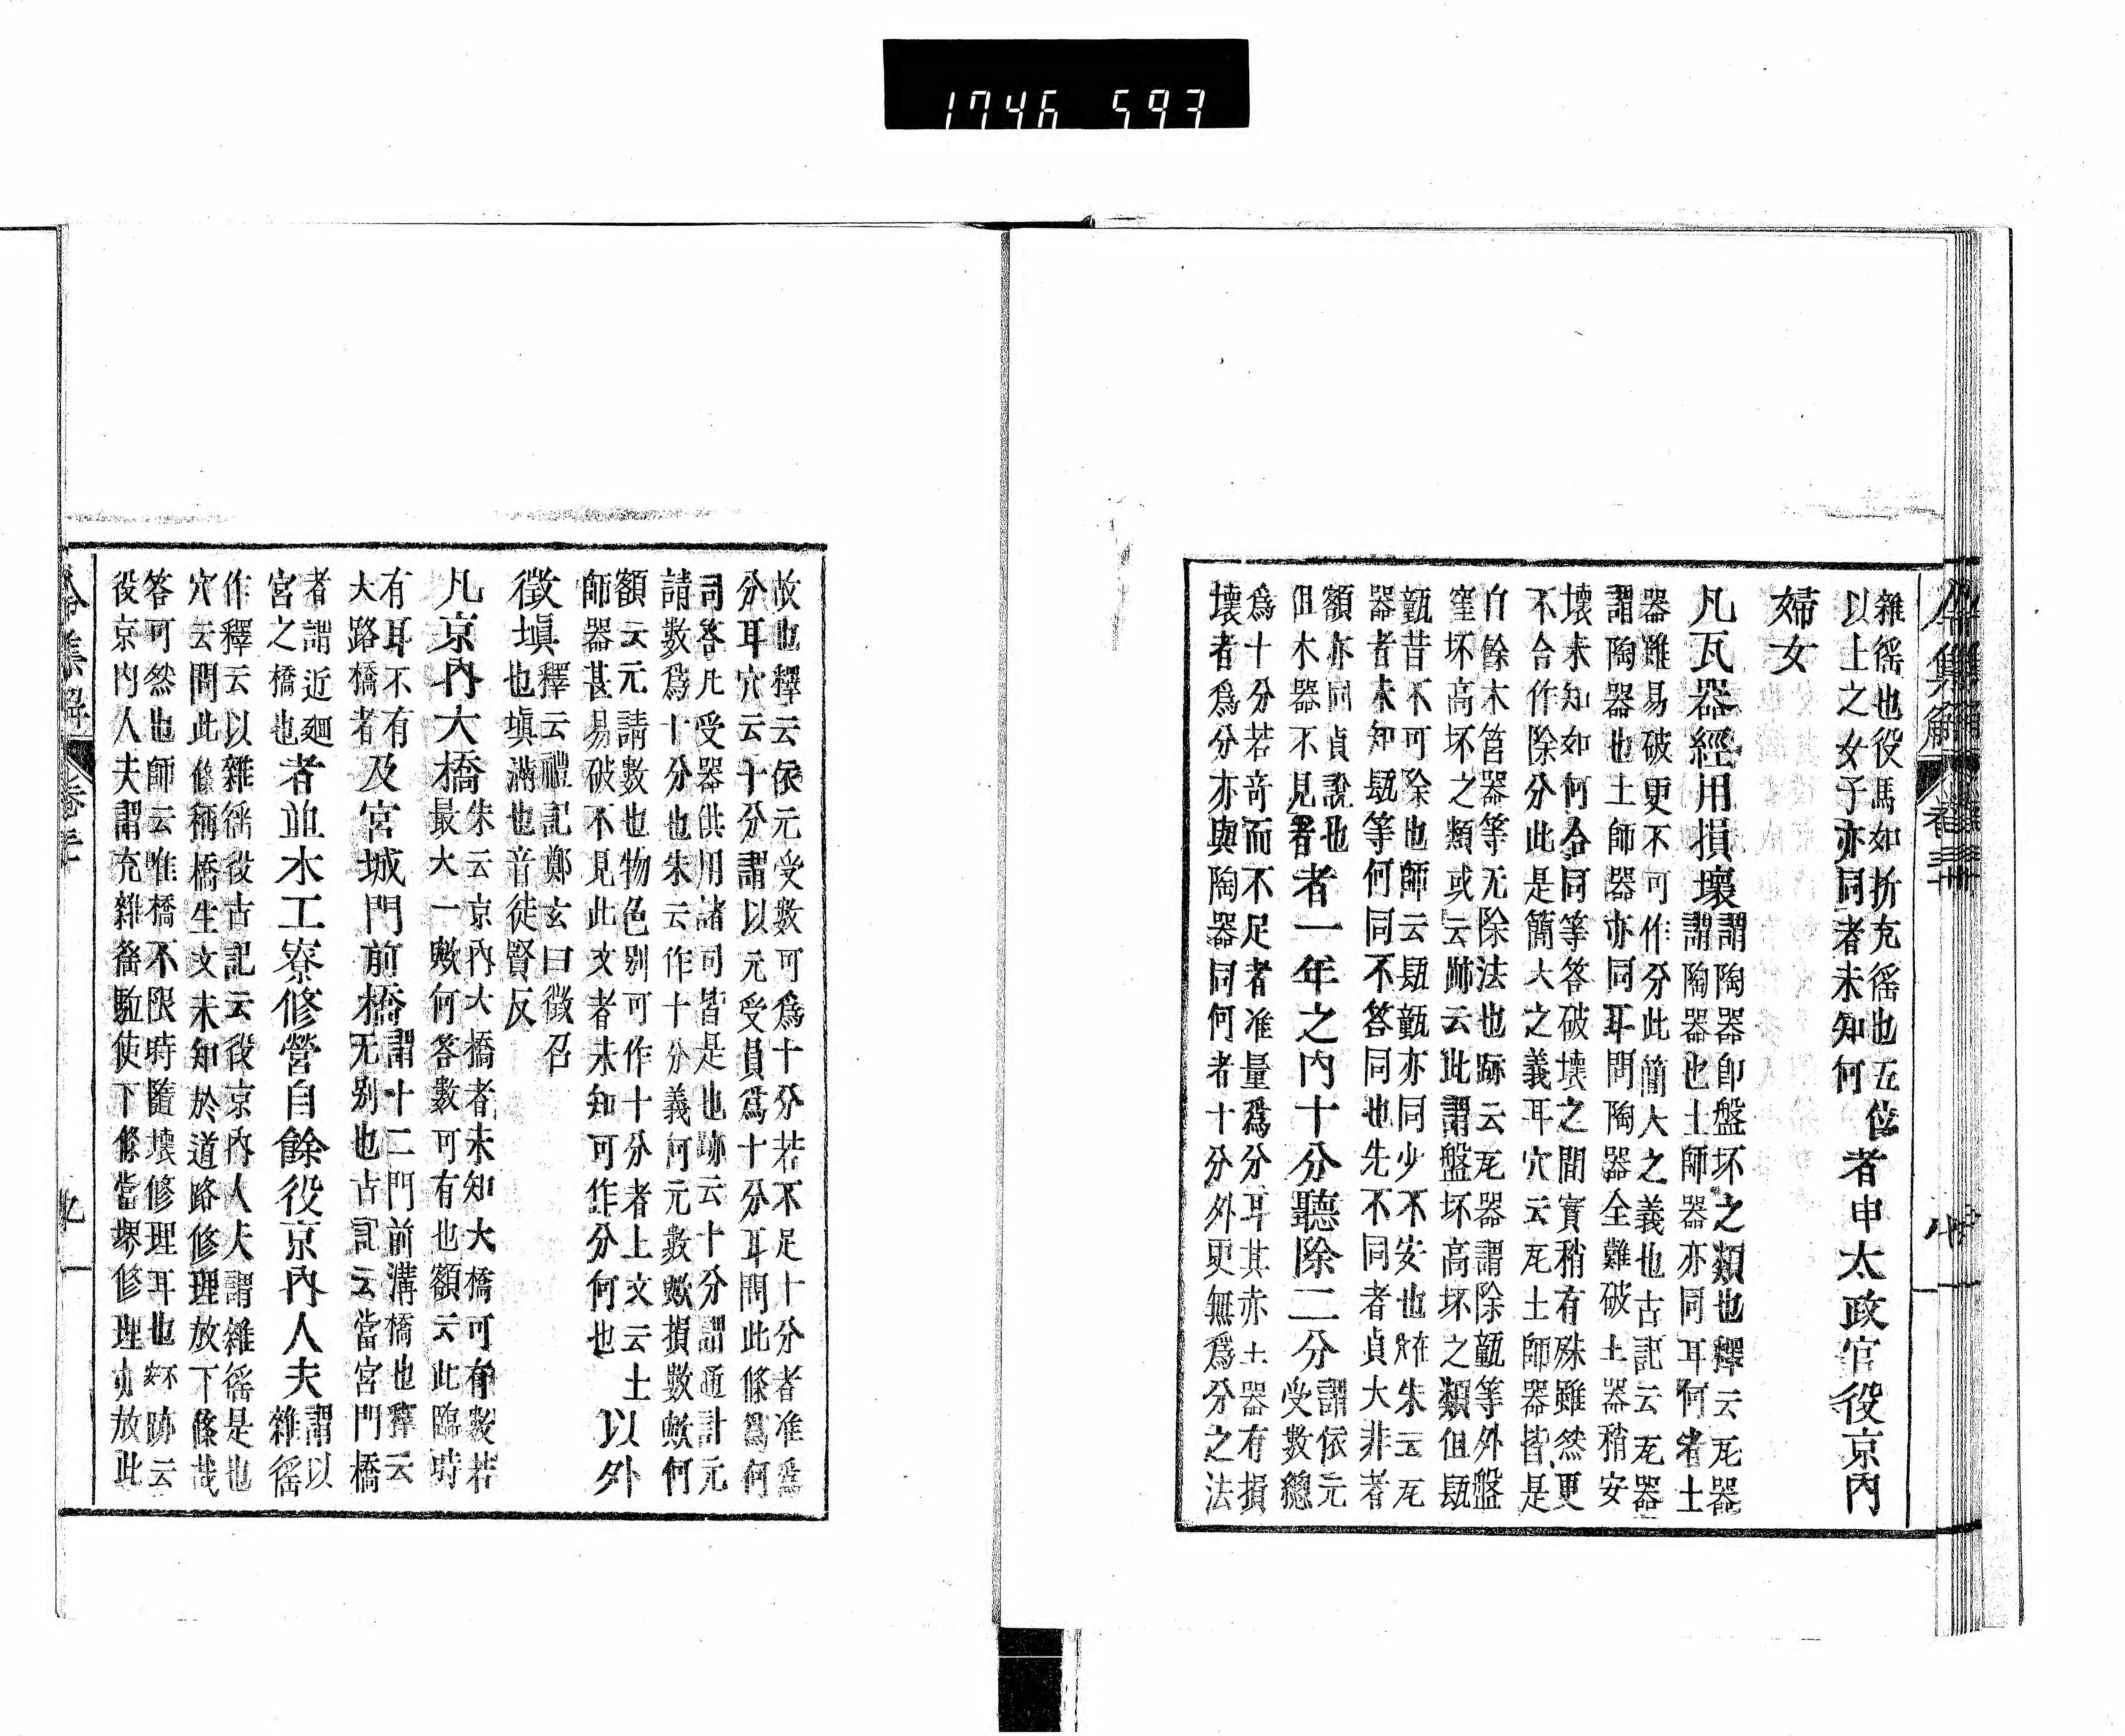 1746 593
雜徭也役馬如折充徭也五位
以上之女子亦同者未知何
者申太政官役京內
婦女
凡瓦器經用損壞
謂陶器卽盤坏之類也釋云瓦器
謂陶器也土師器亦同耳何者土
器雖易破更不可作分此簡大之義也古記云瓦器
謂陶器也土師器亦同耳問陶器全難破土器稍安
壞未知如何合同等答破壞之間實稍有殊雖然更
不合作除分此是簡大之義耳穴云瓦土師器皆是
自餘木筥器等无除法也跡云瓦器謂除甑等外盤
窪坏高坏之類或云跡云此謂盤坏高坏之類但瓼
甑昔不可除也師云瓼甑亦同少不安也在朱云瓦
器者未知瓼等何同不答同也先不同者貞大非者
額亦同貞說也
但木器不見者
者一年之內十分聽除二分
謂依元
受數總
爲十分若奇而不足者准量爲分耳其赤土器有損
壞者爲分亦與陶器同何者十分外更無爲分之法
故也釋云依元受數可爲十分若不足十分者准爲
分耳穴云十分謂以元受員爲十分耳問此條爲何
司答凡受器供用諸司皆是也跡云十分謂通計元
請數爲十分也朱云作十分義何元數歟損數歟何
額云元請數也物色別可作十分者上文云土
師器甚易破不見此文者未知可作分何也
以外
徵塡
釋云禮記鄭玄曰徵召
也塡滿也音徒賢反
凡京內大橋
朱云京內大橋者未知大橋可有數若
最大一歟何答數可有也額云此臨時
有耳不有
大路橋者
及宮城門前橋
謂十二門前溝橋也釋云
无別也古記云當宮門橋
者謂近廻
宮之橋也
者並木工寮修營自餘役京內人夫
謂以
雜徭
作釋云以雜徭役古記云役京內人夫謂雜徭是也
穴云問此條稱橋生文未知於道路修理放下條哉
答可然也師云唯橋不限時隨壞修理耳也跡云
役京內人夫謂充雜徭駈使下條當堺修理亦放此